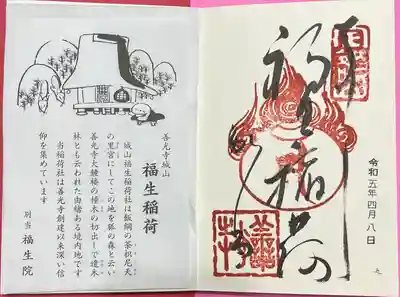 善光寺城山
福生稲荷
城山福生稲荷社は飯綱の荼枳尼天
の里宮にしてこの地を狐の森と云い
善光寺大鐘楼の橦木の切出しで橦木
林とも云われた由緒ある境内地です
当稲荷社は善光寺創建以来深い信
仰を集めています
別当 福生院
福生稲荷
令和五年四月八日